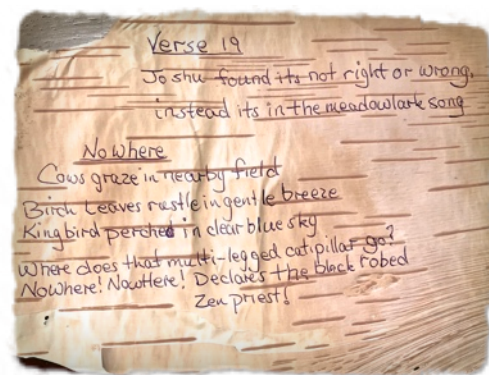 Verse 19
Joshu found its not right or wrong,
instead its in the meadowlark song
Nowhere
Cows graze in nearby field
Birch Leaves rustle in gentle breeze
Kingbird perched in clear blue sky
Where does that multi-legged catipillar go?
NoWhere! NowHere! Declares the black robed
Zen priest!